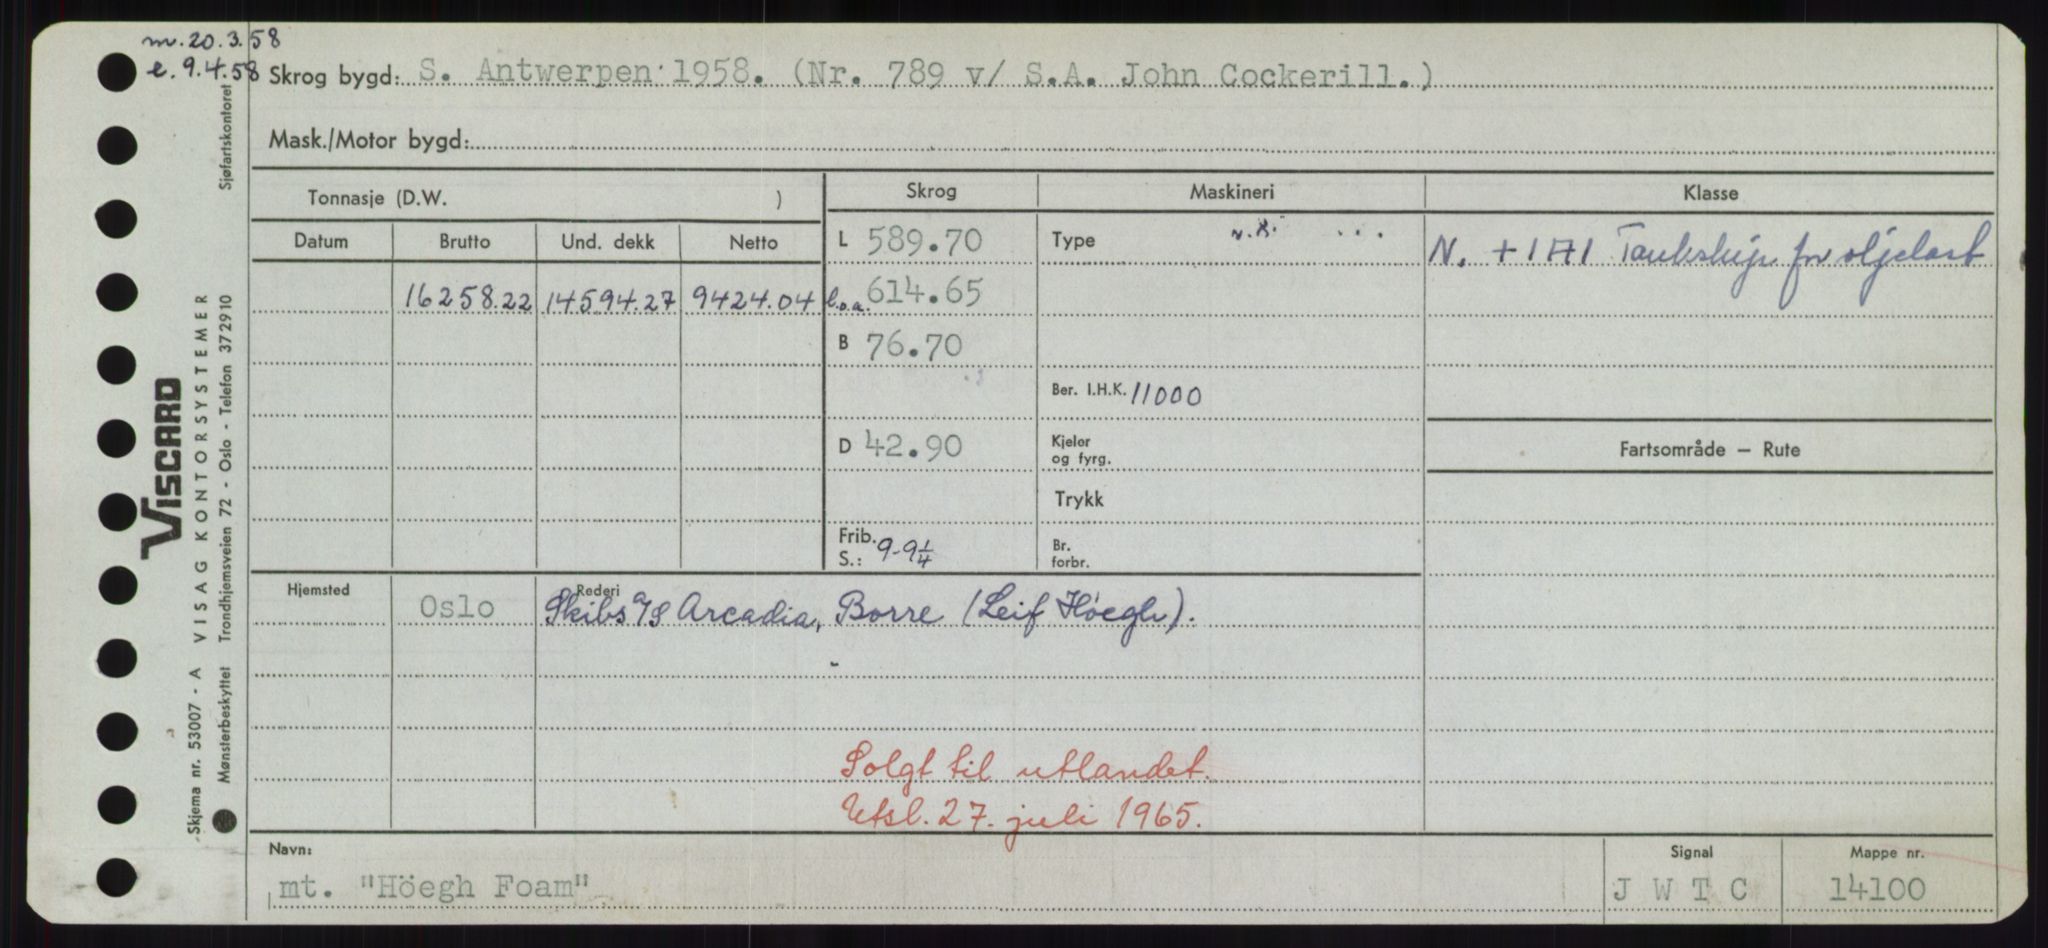 m. 20.3.58
e. 9.4.58
Skrog bygd: S. Antwerpen 1958. (Nr. 789 v/ S.A. John Cockerill.)
Mask./Motor bygd:
Tonnasje (D.W. )
Skrog Maskineri Klasse
Datum Brutto Und. dekk Netto
L 589.70 Type N. +1A1 Tankskip for oljelast
16258.22 14594.27 9424.04 l.o.a. 614.65
B 76.70
Ber. I.H.K. 11000
D 42.90 Kjeler og fyrg. Fartsområde – Rute
Trykk
Frib. S.: 9-9¼ Br. forbr.
Hjemsted Rederi
Oslo Skibs A/S Arcadia, Borre (Leif Höegh).
Solgt til utlandet.
Utsl. 27. juli 1965.
Navn: Signal Mappe nr.
mt. "Höegh Foam" J W T C 14100
VISCARD
VISAG KONTORSYSTEMER
Skjema nr. 53007 - A
Mønsterbeskyttet Trondhjemsveien 72 - Oslo - Telefon 372910 Sjøfartskontoret